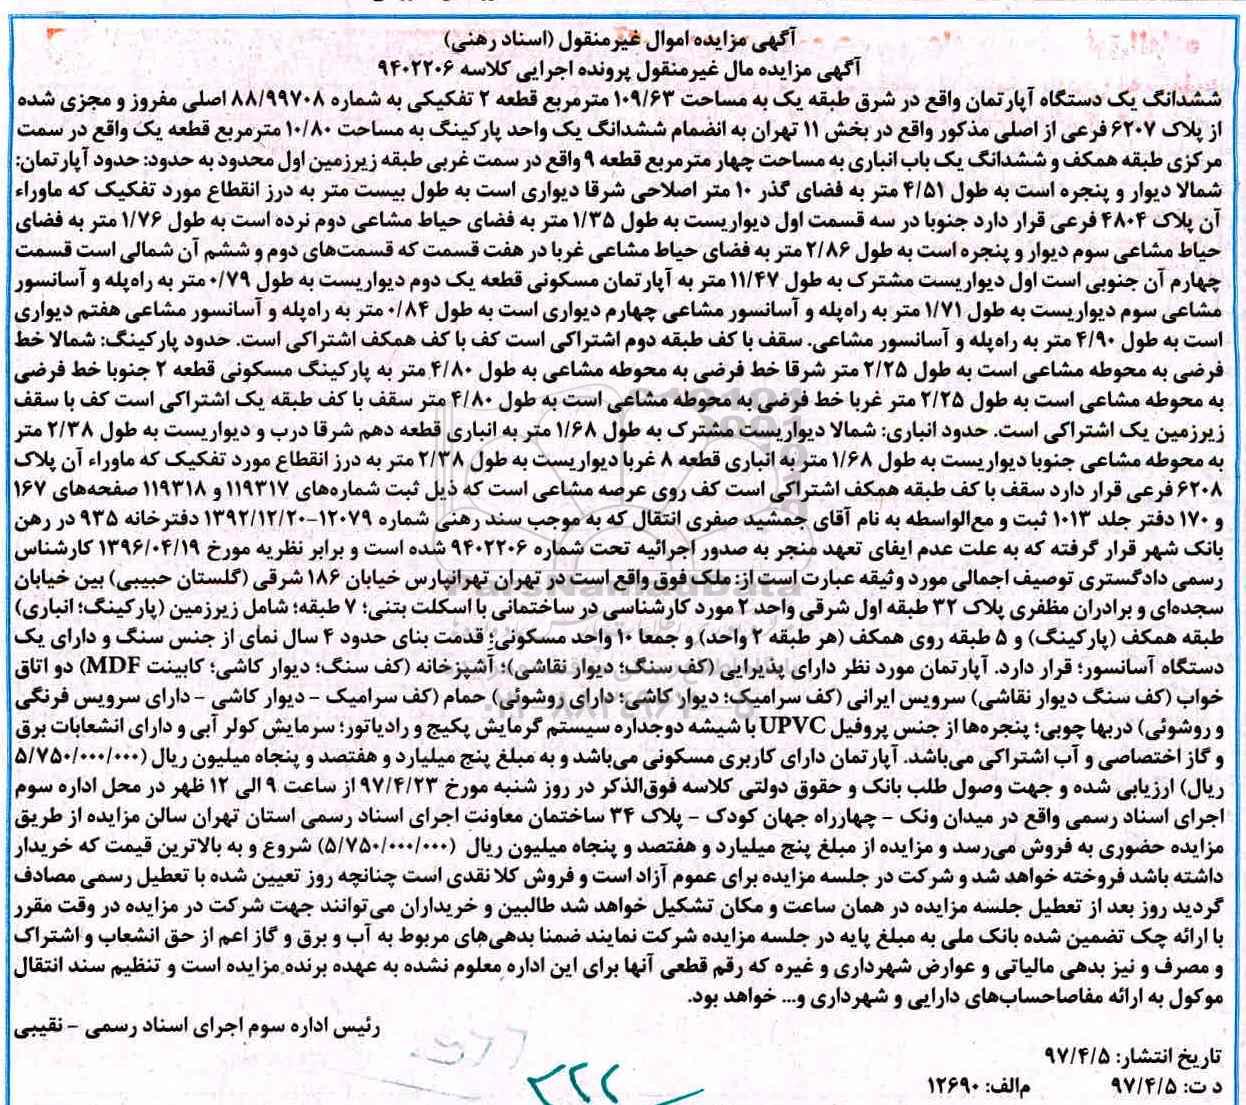 آگهی مزایده اموال غیرمنقول (اسناد رهنی)
آگهی مزایده مال غیرمنقول پرونده اجرایی کلاسه ۹۴۰۲۲۰۶
ششدانگ یک دستگاه آپارتمان واقع در شرق طبقه یک به مساحت ۱۰۹/۶۳ مترمربع قطعه ۲ تفکیکی به شماره ۸۸/۹۹۷۰۸ اصلی مفروز و مجزی شده
از پلاک ۶۲۰۷ فرعی از اصلی مذکور واقع در بخش ۱۱ تهران به انضمام ششدانگ یک واحد پارکینگ به مساحت ۱۰/۸۰ مترمربع قطعه یک واقع در سمت
مرکزی طبقه همکف و ششدانگ یک باب انباری به مساحت چهار مترمربع قطعه ۹ واقع در سمت غربی طبقه زیرزمین اول محدود به حدود: حدود آپارتمان:
شمالا دیوار و پنجره است به طول ۴/۵۱ متر به فضای گذر ۱۰ متر اصلاحی شرقا دیواری است به طول بیست متر به درز انقطاع مورد تفکیک که ماوراء
آن پلاک ۴۸۰۴ فرعی قرار دارد جنوبا در سه قسمت اول دیواریست به طول ۱/۳۵ متر به فضای حیاط مشاعی دوم نرده است به طول ۱/۷۶ متر به فضای
حیاط مشاعی سوم دیوار و پنجره است به طول ۲/۸۶ متر به فضای حیاط مشاعی غربا در هفت قسمت که قسمت‌های دوم و ششم آن شمالی است قسمت
چهارم آن جنوبی است اول دیواریست مشترک به طول ۱۱/۴۷ متر به آپارتمان مسکونی قطعه یک دوم دیواریست به طول ۰/۷۹ متر به راه‌پله و آسانسور
مشاعی سوم دیواریست به طول ۱/۷۱ متر به راه‌پله و آسانسور مشاعی چهارم دیواری است به طول ۰/۸۴ متر به راه‌پله و آسانسور مشاعی هفتم دیواری
است به طول ۴/۹۰ متر به راه‌پله و آسانسور مشاعی. سقف با کف طبقه دوم اشتراکی است کف با کف همکف اشتراکی است. حدود پارکینگ: شمالا خط
فرضی به محوطه مشاعی است به طول ۲/۲۵ متر شرقا خط فرضی به محوطه مشاعی به طول ۴/۸۰ متر به پارکینگ مسکونی قطعه ۲ جنوبا خط فرضی
به محوطه مشاعی است به طول ۲/۲۵ متر غربا خط فرضی به محوطه مشاعی است به طول ۴/۸۰ متر سقف با کف طبقه یک اشتراکی است کف با سقف
زیرزمین یک اشتراکی است. حدود انباری: شمالا دیواریست مشترک به طول ۱/۶۸ متر به انباری قطعه دهم شرقا درب و دیواریست به طول ۲/۳۸ متر
به محوطه مشاعی جنوبا دیواریست به طول ۱/۶۸ متر به انباری قطعه ۸ غربا دیواریست به طول ۲/۳۸ متر به درز انقطاع مورد تفکیک که ماوراء آن پلاک
۶۲۰۸ فرعی قرار دارد سقف با کف طبقه همکف اشتراکی است کف روی عرصه مشاعی است که ذیل ثبت شماره‌های ۱۱۹۳۱۷ و ۱۱۹۳۱۸ صفحه‌های ۱۶۷
و ۱۷۰ دفتر جلد ۱۰۱۳ ثبت و مع‌الواسطه به نام آقای جمشید صفری انتقال که به موجب سند رهنی شماره ۱۲۰۷۹-۱۳۹۲/۱۲/۲۰ دفترخانه ۹۳۵ در رهن
بانک شهر قرار گرفته که به علت عدم ایفای تعهد منجر به صدور اجرائیه تحت شماره ۹۴۰۲۲۰۶ شده است و برابر نظریه مورخ ۱۳۹۶/۰۴/۱۹ کارشناس
رسمی دادگستری توصیف اجمالی مورد وثیقه عبارت است از: ملک فوق واقع است در تهران تهرانپارس خیابان ۱۸۶ شرقی (گلستان حبیبی) بین خیابان
سجده‌ای و برادران مظفری پلاک ۳۲ طبقه اول شرقی واحد ۲ مورد کارشناسی در ساختمانی با اسکلت بتنی؛ ۷ طبقه؛ شامل زیرزمین (پارکینگ؛ انباری)
طبقه همکف (پارکینگ) و ۵ طبقه روی همکف (هر طبقه ۲ واحد) و جمعا ۱۰ واحد مسکونی؛ قدمت بنای حدود ۴ سال نمای از جنس سنگ و دارای یک
دستگاه آسانسور؛ قرار دارد. آپارتمان مورد نظر دارای پذیرایی (کف سنگ؛ دیوار نقاشی)؛ آشپزخانه (کف سنگ؛ دیوار کاشی؛ کابینت MDF) دو اتاق
خواب (کف سنگ دیوار نقاشی) سرویس ایرانی (کف سرامیک؛ دیوار کاشی؛ دارای روشوئی) حمام (کف سرامیک - دیوار کاشی - دارای سرویس فرنگی
و روشوئی) دربها چوبی؛ پنجره‌ها از جنس پروفیل UPVC با شیشه دوجداره سیستم گرمایش پکیج و رادیاتور؛ سرمایش کولر آبی و دارای انشعابات برق
و گاز اختصاصی و آب اشتراکی می‌باشد. آپارتمان دارای کاربری مسکونی می‌باشد و به مبلغ پنج میلیارد و هفتصد و پنجاه میلیون ریال (۵/۷۵۰/۰۰۰/۰۰۰
ریال) ارزیابی شده و جهت وصول طلب بانک و حقوق دولتی کلاسه فوق‌الذکر در روز شنبه مورخ ۹۷/۴/۲۳ از ساعت ۹ الی ۱۲ ظهر در محل اداره سوم
اجرای اسناد رسمی واقع در میدان ونک - چهارراه جهان کودک - پلاک ۳۴ ساختمان معاونت اجرای اسناد رسمی استان تهران سالن مزایده از طریق
مزایده حضوری به فروش می‌رسد و مزایده از مبلغ پنج میلیارد و هفتصد و پنجاه میلیون ریال (۵/۷۵۰/۰۰۰/۰۰۰) شروع و به بالاترین قیمت که خریدار
داشته باشد فروخته خواهد شد و شرکت در جلسه مزایده برای عموم آزاد است و فروش کلا نقدی است چنانچه روز تعیین شده با تعطیل رسمی مصادف
گردید روز بعد از تعطیل جلسه مزایده در همان ساعت و مکان تشکیل خواهد شد طالبین و خریداران می‌توانند جهت شرکت در مزایده در وقت مقرر
با ارائه چک تضمین شده بانک ملی به مبلغ پایه در جلسه مزایده شرکت نمایند ضمنا بدهی‌های مربوط به آب و برق و گاز اعم از حق انشعاب و اشتراک
و مصرف و نیز بدهی مالیاتی و عوارض شهرداری و غیره که رقم قطعی آنها برای این اداره معلوم نشده به عهده برنده مزایده است و تنظیم سند انتقال
موکول به ارائه مفاصاحساب‌های دارایی و شهرداری و... خواهد بود.
رئیس اداره سوم اجرای اسناد رسمی - نقیبی
تاریخ انتشار: ۹۷/۴/۵
د ت: ۹۷/۴/۵ م‌الف: ۱۲۶۹۰
ParsNamadData